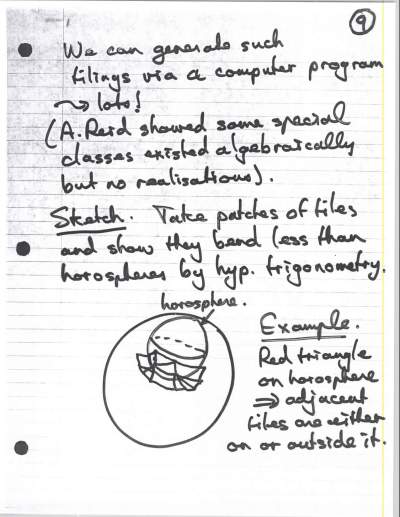 9
We can generate such
tilings via a computer program
⤳ lots!
(A. Reid showed some special
classes existed algebraically
but no realisations).
Sketch. Take patches of tiles
and show they bend less than
horospheres by hyp. trigonometry.
horosphere.
Example.
Red triangle
on horosphere
⇒ adjacent
tiles are either
on or outside it.